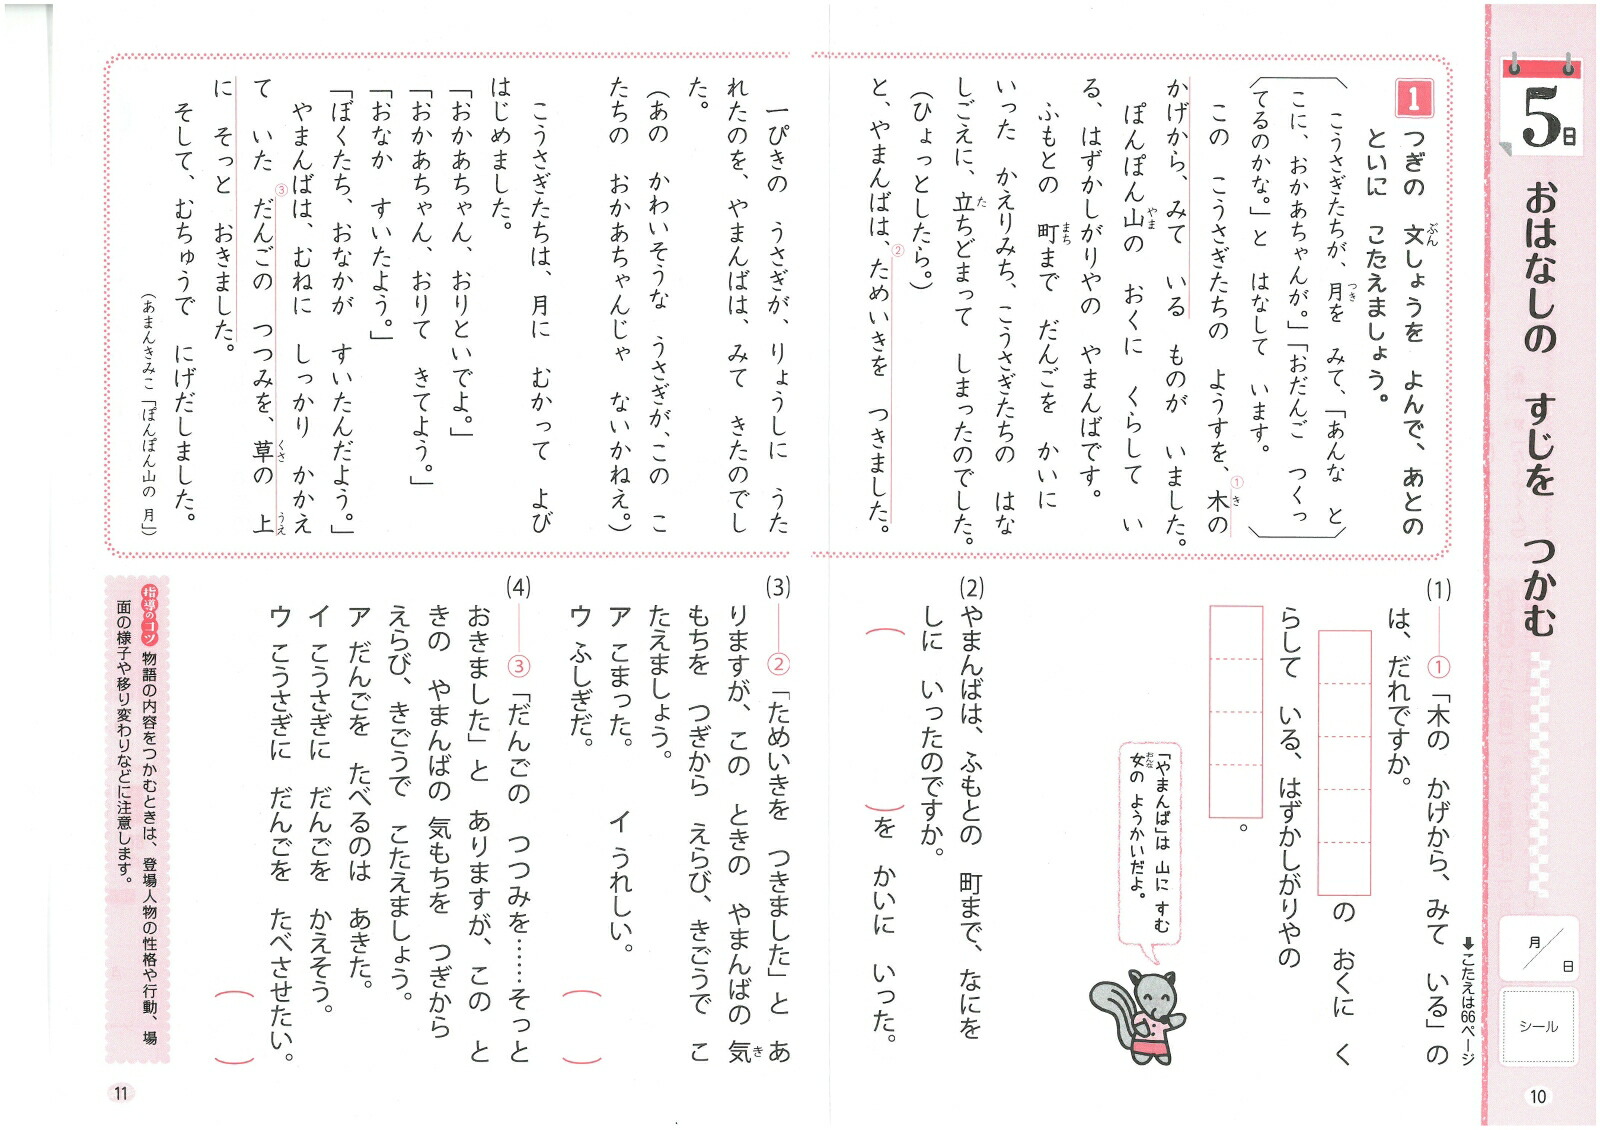 5日
おはなしの すじを つかむ
月 日
シール
10
➡こたえは66ページ
1
つぎの 文しょうを よんで、あとの
ぶん
といに こたえましょう。
こうさぎたちが、月を みて、「あんな と
つき
こに、おかあちゃんが。」「おだんご つくっ
てるのかな。」と はなして います。
この こうさぎたちの ようすを、①木の
き
かげから、みて いる ものが いました。
ぽんぽん山の おくに くらして い
やま
る、はずかしがりやの やまんばです。
ふもとの 町まで だんごを かいに
まち
いった かえりみち、こうさぎたちの はな
しごえに、立ちどまって しまったのでした。
た
(ひょっとしたら。)
と、やまんばは、②ためいきを つきました。
一ぴきの うさぎが、りょうしに うた
れたのを、やまんばは、みて きたのでし
た。
(あの かわいそうな うさぎが、この こ
たちの おかあちゃんじゃ ないかねえ。)
こうさぎたちは、月に むかって よび
はじめました。
「おかあちゃん、おりといでよ。」
「おかあちゃん、おりて きてよう。」
「おなか すいたよう。」
「ぼくたち、おなかが すいたんだよう。」
やまんばは、むねに しっかり かかえ
て いた ③だんごの つつみを、草の 上
くさ うえ
に そっと おきました。
そして、むちゅうで にげだしました。
(あまんきみこ「ぽんぽん山の 月」)
(1) ①「木の かげから、みて いる」の
は、だれですか。
の おくに く
らして いる、はずかしがりやの
。
「やまんば」は 山に すむ
女の ようかいだよ。
おんな
(2) やまんばは、ふもとの 町まで、なにを
しに いったのですか。
( )を かいに いった。
(3) ②「ためいきを つきました」と あ
りますが、この ときの やまんばの 気
き
もちを つぎから えらび、きごうで こ
たえましょう。
ア こまった。 イ うれしい。
ウ ふしぎだ。
( )
(4) ③「だんごの つつみを……そっと
おきました」と ありますが、この と
きの やまんばの 気もちを つぎから
えらび、きごうで こたえましょう。
ア だんごを たべるのは あきた。
イ こうさぎに だんごを かえそう。
ウ こうさぎに だんごを たべさせたい。
( )
指導のコツ 物語の内容をつかむときは、登場人物の性格や行動、場
面の様子や移り変わりなどに注意します。
11